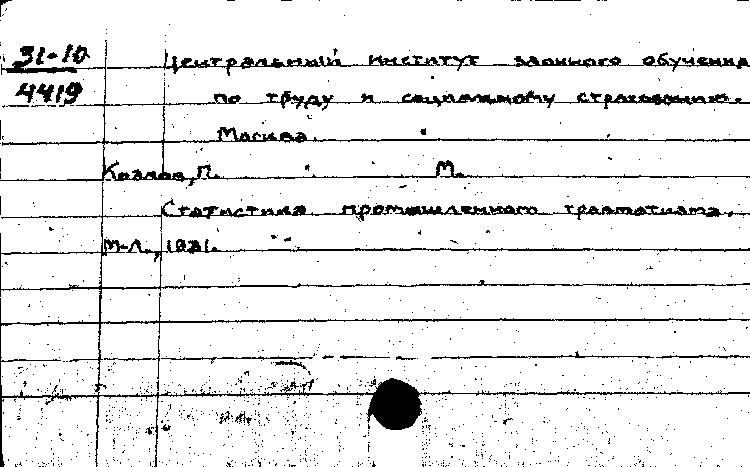 31-10
4419
Центральный институт заочного обучения
по труду и социальному страхованию.
Москва.
Козлов, П. М.
Статистика промышленного травматизма.
М-Л., 1931.